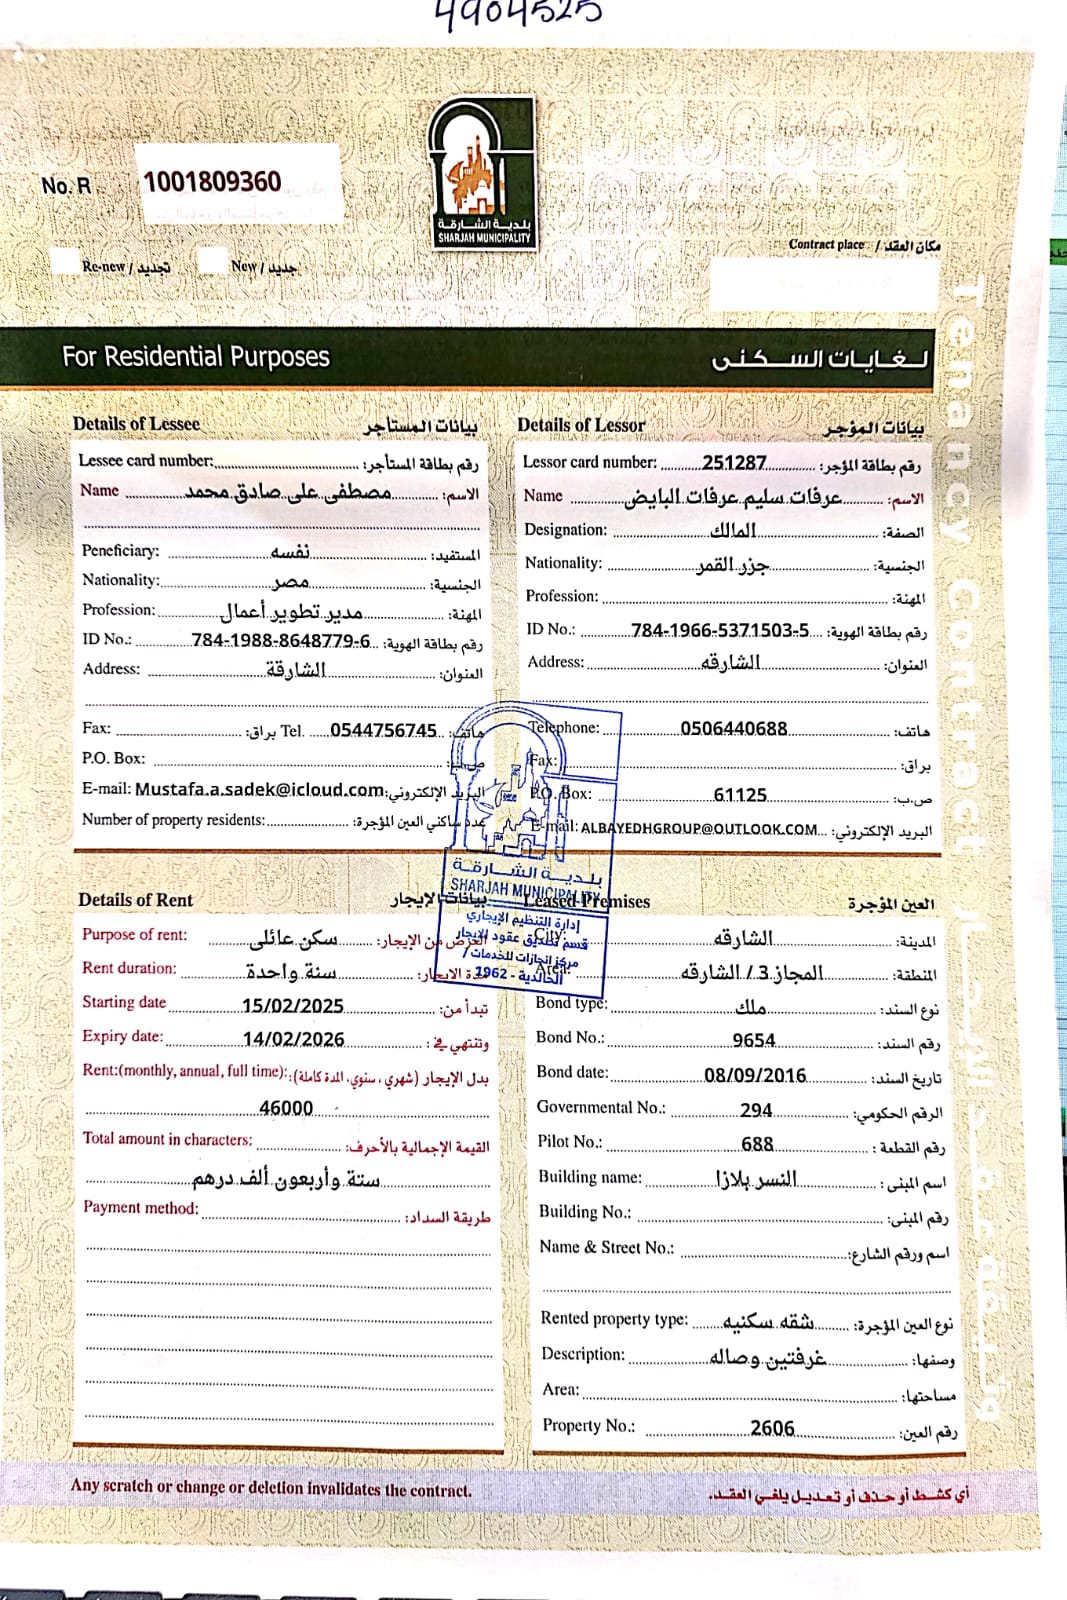 4904525
No. R 1001809360
بلدية الشارقة
SHARJAH MUNICIPALITY
Re-new / تجديد New / جديد
Contract place / مكان العقد
For Residential Purposes لغايات السكنى
Tenancy Contract
Details of Lessee بيانات المستأجر
Lessee card number: رقم بطاقة المستأجر:
Name مصطفى على صادق محمد الاسم:
Peneficiary: نفسه المستفيد:
Nationality: مصر الجنسية:
Profession: مدير تطوير أعمال المهنة:
ID No.: 784-1988-8648779-6 رقم بطاقة الهوية:
Address: الشارقة العنوان:
Fax: براق: Tel. 0544756745 هاتف:
P.O. Box: ص.ب:
E-mail: Mustafa.a.sadek@icloud.com البريد الإلكتروني:
Number of property residents: عدد ساكني العين المؤجرة:
Details of Lessor بيانات المؤجر
Lessor card number: 251287 رقم بطاقة المؤجر:
Name عرفات سليم عرفات البايض الاسم:
Designation: المالك الصفة:
Nationality: جزر القمر الجنسية:
Profession: المهنة:
ID No.: 784-1966-5371503-5 رقم بطاقة الهوية:
Address: الشارقه العنوان:
Telephone: 0506440688 هاتف:
Fax: براق:
P.O. Box: 61125 ص.ب:
E-mail: ALBAYEDHGROUP@OUTLOOK.COM البريد الإلكتروني:
بلدية الشارقة
SHARJAH MUNICIPALITY
إدارة التنظيم الإيجاري
قسم تصديق عقود الإيجار
مركز انجازات للخدمات /
الخالدية - 1962
Details of Rent بيانات الإيجار
Purpose of rent: سكن عائلى الغرض من الإيجار:
Rent duration: سنة واحدة مدة الايجار:
Starting date 15/02/2025 تبدأ من:
Expiry date: 14/02/2026 وتنتهي في:
Rent:(monthly, annual, full time): بدل الإيجار (شهري، سنوي، المدة كاملة):
46000
Total amount in characters: القيمة الإجمالية بالأحرف:
ستة وأربعون ألف درهم
Payment method: طريقة السداد:
Leased Premises العين المؤجرة
City: الشارقه المدينة:
Area: المجاز 3 / الشارقه المنطقة:
Bond type: ملك نوع السند:
Bond No.: 9654 رقم السند:
Bond date: 08/09/2016 تاريخ السند:
Governmental No.: 294 الرقم الحكومي:
Pilot No.: 688 رقم القطعة:
Building name: النسر بلازا اسم المبنى:
Building No.: رقم المبنى:
Name & Street No.: اسم ورقم الشارع:
Rented property type: شقه سكنيه نوع العين المؤجرة:
Description: غرفتين وصاله وصفها:
Area: مساحتها:
Property No.: 2606 رقم العين:
Any scratch or change or deletion invalidates the contract. أي كشط أو حذف أو تعديل يلغي العقد.